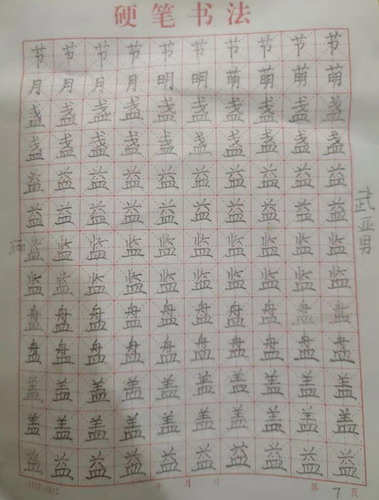 硬笔书法
节节节节节节节节节
月月月月明明萌萌萌萌
盏盏盏盏盏盏盏盏盏
盏盏盏盏盏盏盏盏盏
益益益益益益益益益
益益益益益益益益益
监监监监监监监监监
监监监监监监监监监
盘盘盘盘盘盘盘盘盘
盘盘盘盘盘盘盘盘盘
盖盖盖盖盖盖盖盖盖
盖盖盖盖盖盖盖盖盖
益益益益益益益益益
武亚男
月 日 第 7 页